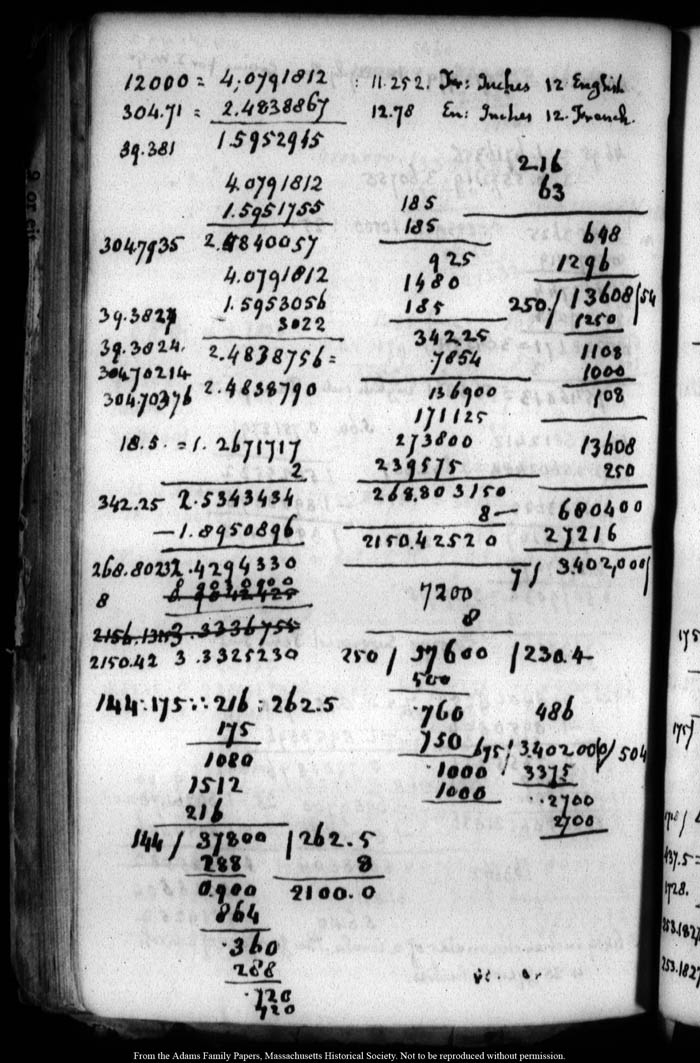 12000 = 4,0791812
304.71 = 2.4838867
39.381 1.5952945
4.0791812
1.5951755
304.7935 2.4840057
4.0791812
39.3827 1.5953056
3022
39.3024. 2.4838756 =
304.70214
304.70376 2.4838790
18.5. = 1.2671717
2
342.25 2.5343434
— 1.8950896
268.80232.4294330
8
2150.42 3.3325230
144 : 175 :: 216 : 262.5
175
1080
1512
216
144 / 37800 / 262.5
288 8
0.900 2100.0
864
360
288
720
720
: 11.252. Fr: Inches 12 English
12.78 En: Inches 12. French.
185
185
925
1480
185
34225
7854
136900
171125
273800
239575
268.803150
8
2150.42520
7200
8
250 / 57600 / 230.4
500
760
750
1000
1000
2.16
63
648
1296
250. / 13608 / 54
1250
1108
1000
108
13608
250
680400
27216
7 / 3402,000 /
486
675 / 3402000 / 504
3375
2700
2700
175
175 /
437.5 =
1728.
253.1827
253.1827
From the Adams Family Papers, Massachusetts Historical Society. Not to be reproduced without permission.